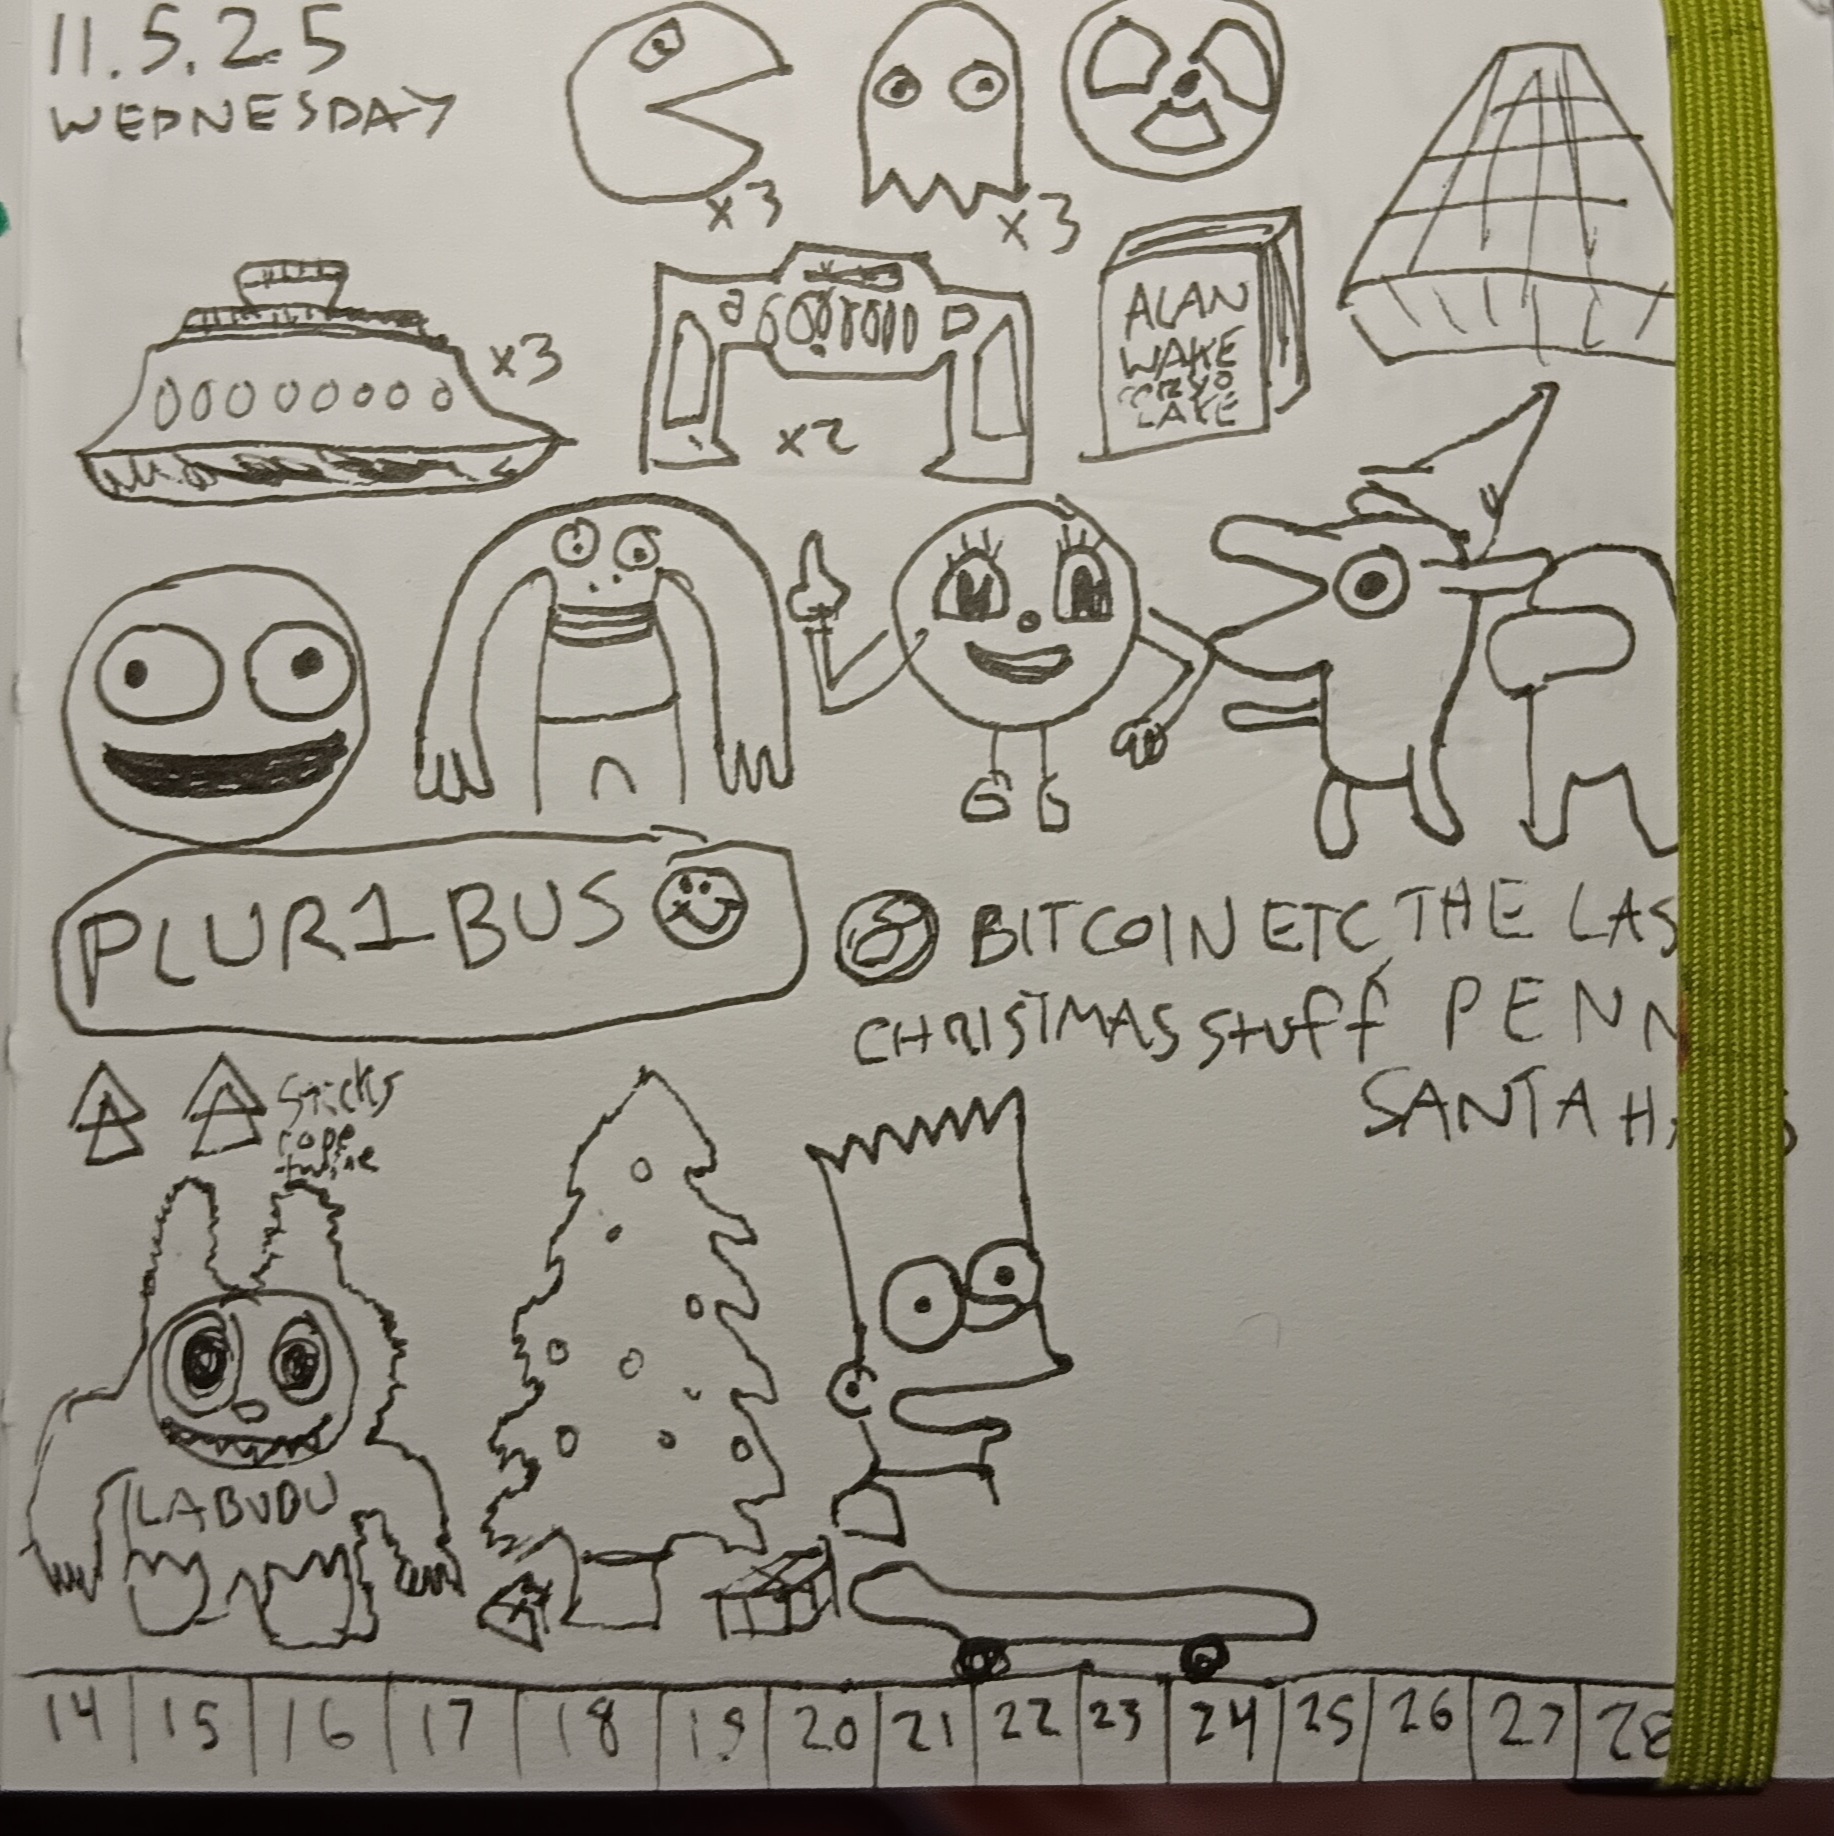 11.5.25
WEDNESDAY
x3
x3
x3
x2
ALAN
WAKE
LAKE
PLUR1BUS
BITCOIN ETC THE LAS
CHRISTMAS stuff PENN
SANTA H
Sticks
rope
twine
LABUDU
14 15 16 17 18 19 20 21 22 23 24 25 26 27 28